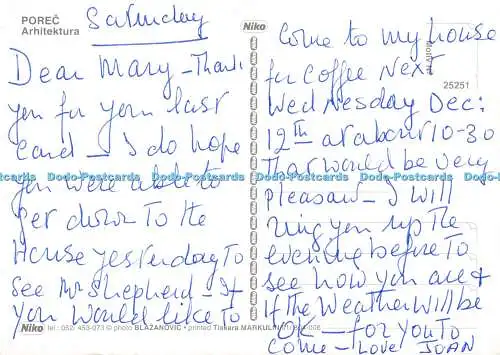 POREČ
Arhitektura
Saturday
Dear Mary - Thank
you for your last
card - I do hope
you were able to
get down to the
House yesterday to
see Mr Shepherd - If
you would like to
Niko
Come to my house
for coffee next
Wednesday Dec:
12th at about 10-30
That would be very
pleasant - I will
ring you up the
evening before to
see how you are &
if the weather will be
OK - for you to
come - Love JOAN
Motiv br.
25251
Dodo-Postcards Dodo-Postcards Dodo-Postcards Dodo-Postcards Dodo-Postcards Dodo-Postcards
Niko tel: 052/ 453-073 © photo BLAŽANOVIĆ • printed Tiskara MARKULIN